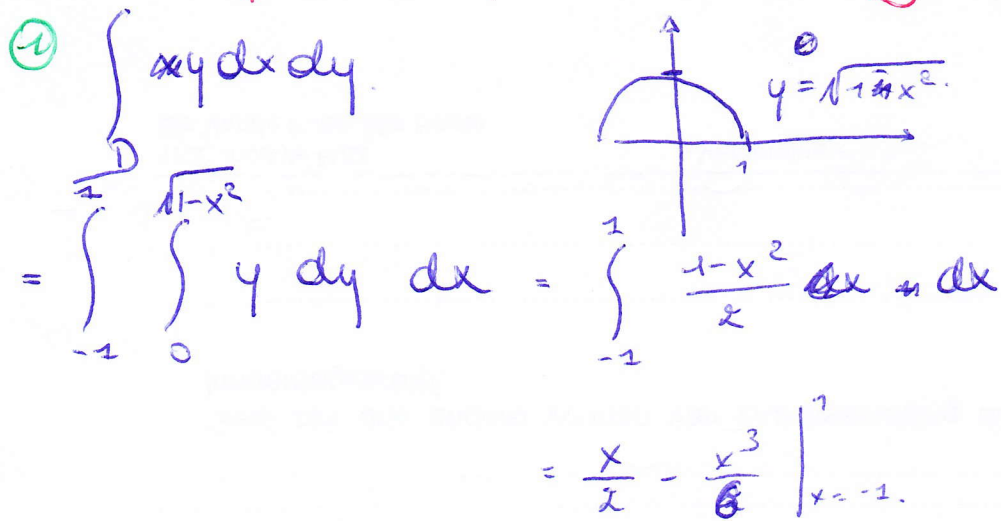 ① ∫_D y dx dy
y = √(1-x²)
1
= ∫_{-1}^{1} ∫_{0}^{√(1-x²)} y dy dx = ∫_{-1}^{1} (1-x²)/2 dx
= x/2 - x³/6 |_{x=-1}^{1}.